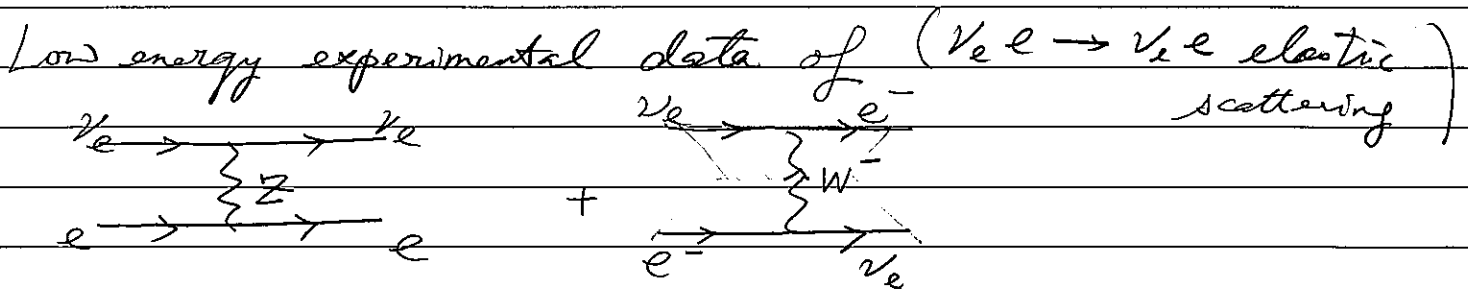 Low energy experimental data of (νₑ e → νₑ e elastic
scattering)
νₑ νₑ νₑ e⁻
Z + W⁻
e e e⁻ νₑ